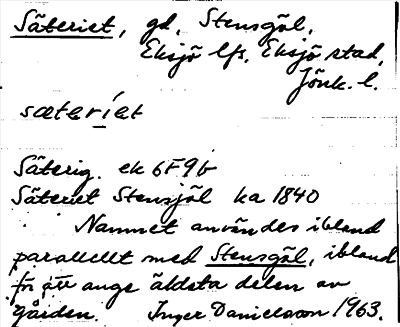 Säteriet, gd, Stensgöl,
Eksjö lfs, Eksjö stad,
Jönk. l.
sæteríet
Säterig. ek 6F9b
Säteriet Stensjöl ka 1840
Namnet användes ibland
parallellt med Stensgöl, ibland
för att ange äldsta delen av
gården. Inger Danielsson 1963.